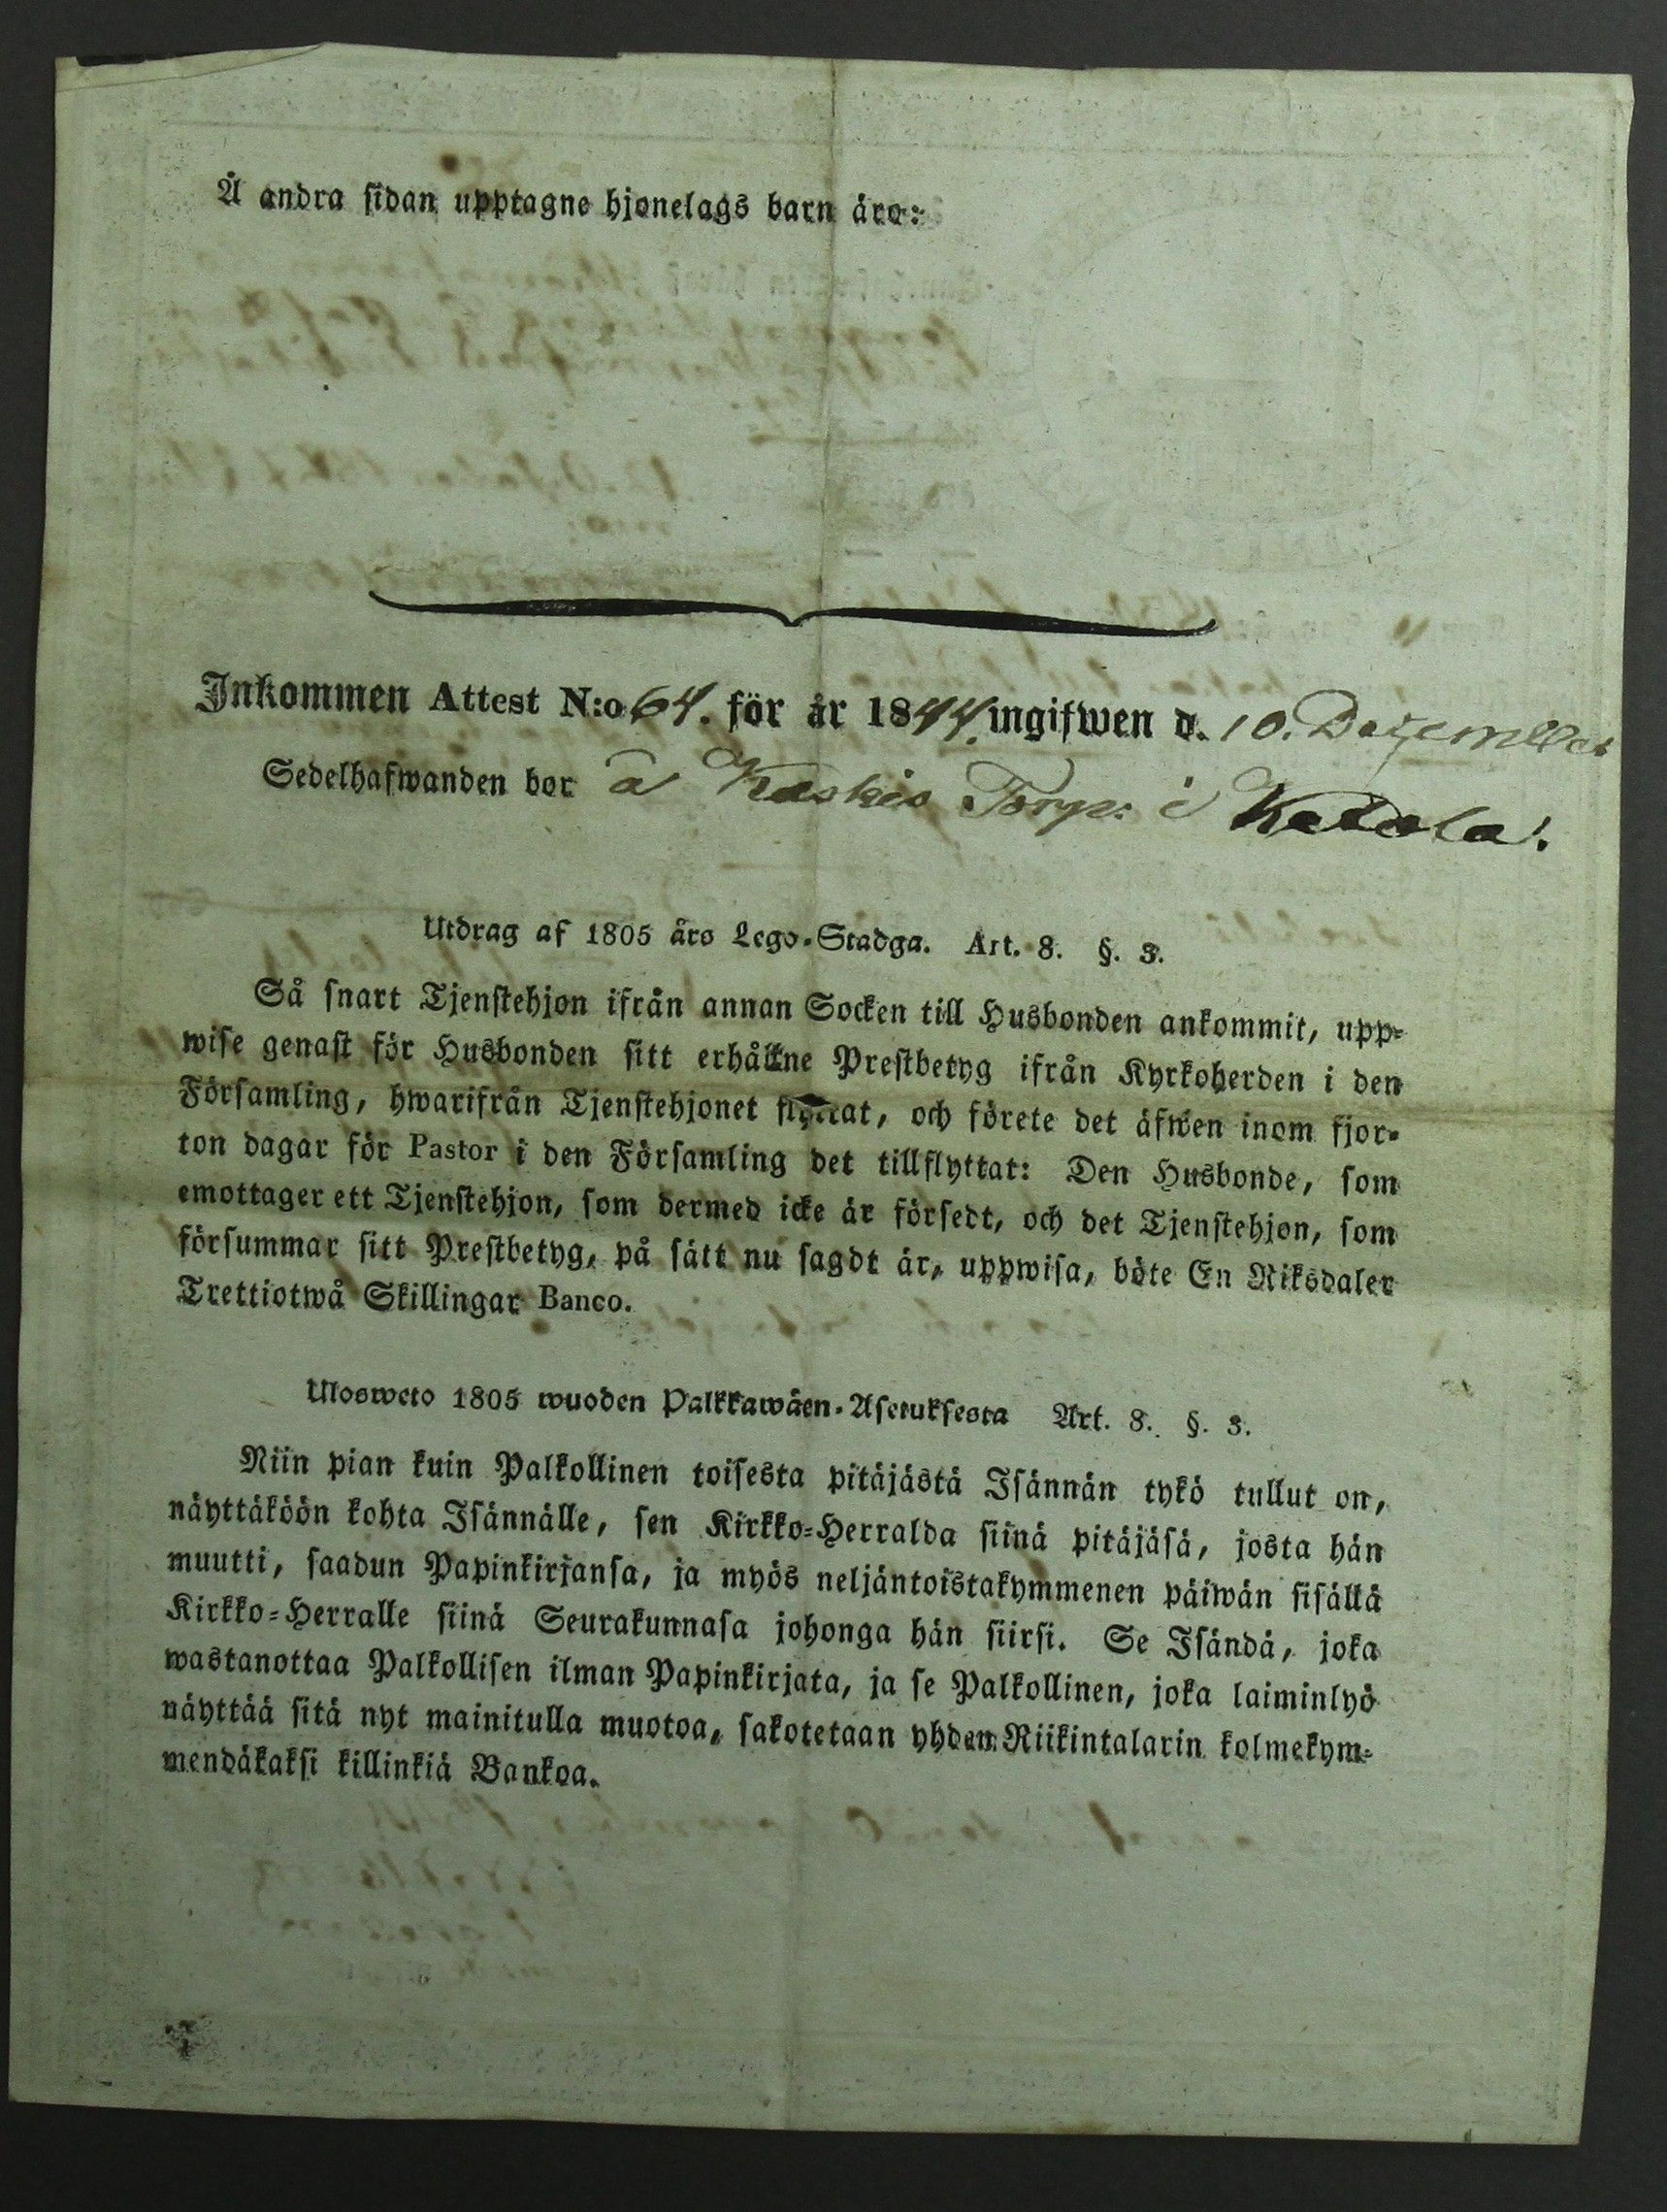 Å andra sidan upptagne hjonelags barn äro:
Inkommen Attest N:o 64. för år 1844. ingifwen d. 10. December
Sedelhafwanden bor å Kaskis Torp: i Kakola.
Utdrag af 1805 års Lego-Stadga. Art. 8. §. 3.
Så snart Tjenstehjon ifrån annan Socken till Husbonden ankommit, upp-
wise genast för Husbonden sitt erhållne Prestbetyg ifrån Kyrkoherden i den
Församling, hwarifrån Tjenstehjonet flyttat, och förete det äfwen inom fjor-
ton dagar för Pastor i den Församling det tillflyttat: Den Husbonde, som
emottager ett Tjenstehjon, som dermed icke är försedt, och det Tjenstehjon, som
försummar sitt Prestbetyg, på sätt nu sagdt är, uppwisa, böte En Riksdaler
Trettiotwå Skillingar Banco.
Ulosweto 1805 wuoden Palkkawäen-Asetuksesta Art. 8. §. 3.
Niin pian kuin Palkollinen toisesta pitäjästä Isännän tykö tullut on,
näyttäköön kohta Isännälle, sen Kirkko-Herralda siinä pitäjäsä, josta hän
muutti, saadun Papinkirjansa, ja myös neljäntoistakymmenen päiwän sisällä
Kirkko-Herralle siinä Seurakunnasa johonga hän siirsi. Se Isändä, joka
wastanottaa Palkollisen ilman Papinkirjata, ja se Palkollinen, joka laiminlyö
näyttää sitä nyt mainitulla muotoa, sakotetaan yhden Riikintalarin kolmekym-
mendäkaksi killinkiä Bankoa.